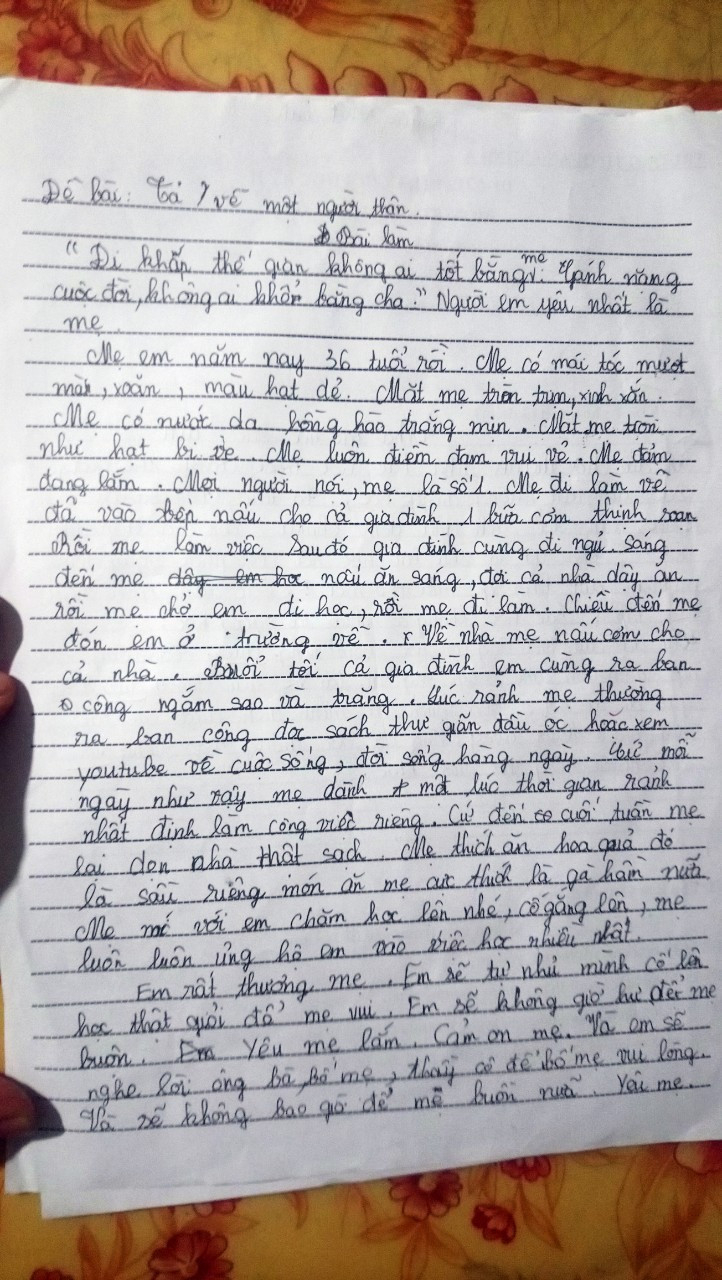 Đề bài: Tả / về một người thân.
Bài làm
"Đi khắp thế gian không ai tốt bằng mẹ. Gánh nặng
cuộc đời, không ai khổ bằng cha." Người em yêu nhất là
mẹ.
Mẹ em năm nay 36 tuổi rồi. Mẹ có mái tóc mượt
mà, xoăn, màu hạt dẻ. Mặt mẹ tròn trịn, xinh xắn.
Mẹ có nước da hồng hào trắng mịn. Mắt mẹ tròn
như hạt bi ve. Mẹ luôn điềm đạm vui vẻ. Mẹ đảm
đang lắm. Mọi người nói, mẹ là số 1. Mẹ đi làm về
đã vào bếp nấu cho cả gia đình 1 bữa cơm thịnh soạn
Rồi mẹ làm việc sau đó gia đình cùng đi ngủ. Sáng
đến mẹ dậy em học nấu ăn sáng, đợi cả nhà dậy ăn
rồi mẹ chở em đi học, rồi mẹ đi làm. Chiều đến mẹ
đón em ở trường về. Về nhà mẹ nấu cơm cho
cả nhà. Buổi tối cả gia đình em cùng ra ban
công ngắm sao và trăng. Lúc rảnh mẹ thường
ra ban công đọc sách thư giãn đầu óc hoặc xem
youtube về cuộc sống, đời sống hàng ngày. Cứ mỗi
ngày như vậy mẹ dành một lúc thời gian rảnh
nhất định làm công việc riêng. Cứ đến cuối tuần mẹ
lại dọn nhà thật sạch. Mẹ thích ăn hoa quả đó
là sầu riêng món ăn mẹ cực thích là gà hầm nữa
Mẹ với em chăm học lên nhé, cố gắng lên, mẹ
luôn luôn ủng hộ em vào việc học nhiều nhất.
Em rất thương mẹ. Em sẽ tự nhủ mình cố lên
học thật giỏi để mẹ vui. Em sẽ không giờ hư để mẹ
buồn. Em Yêu mẹ lắm. Cảm ơn mẹ. Và em sẽ
nghe lời ông bà, bố mẹ, thầy cô để bố mẹ vui lòng.
Và sẽ không bao giờ để mẹ buồn nữa. Yêu mẹ.